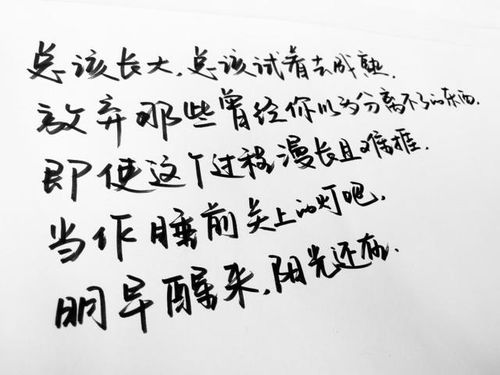 总该长大,总该试着去成熟.
放弃那些曾经你以为分离不了的东西.
即使这个过程漫长且难捱.
当作睡前关上的灯吧.
明早醒来,阳光还在.